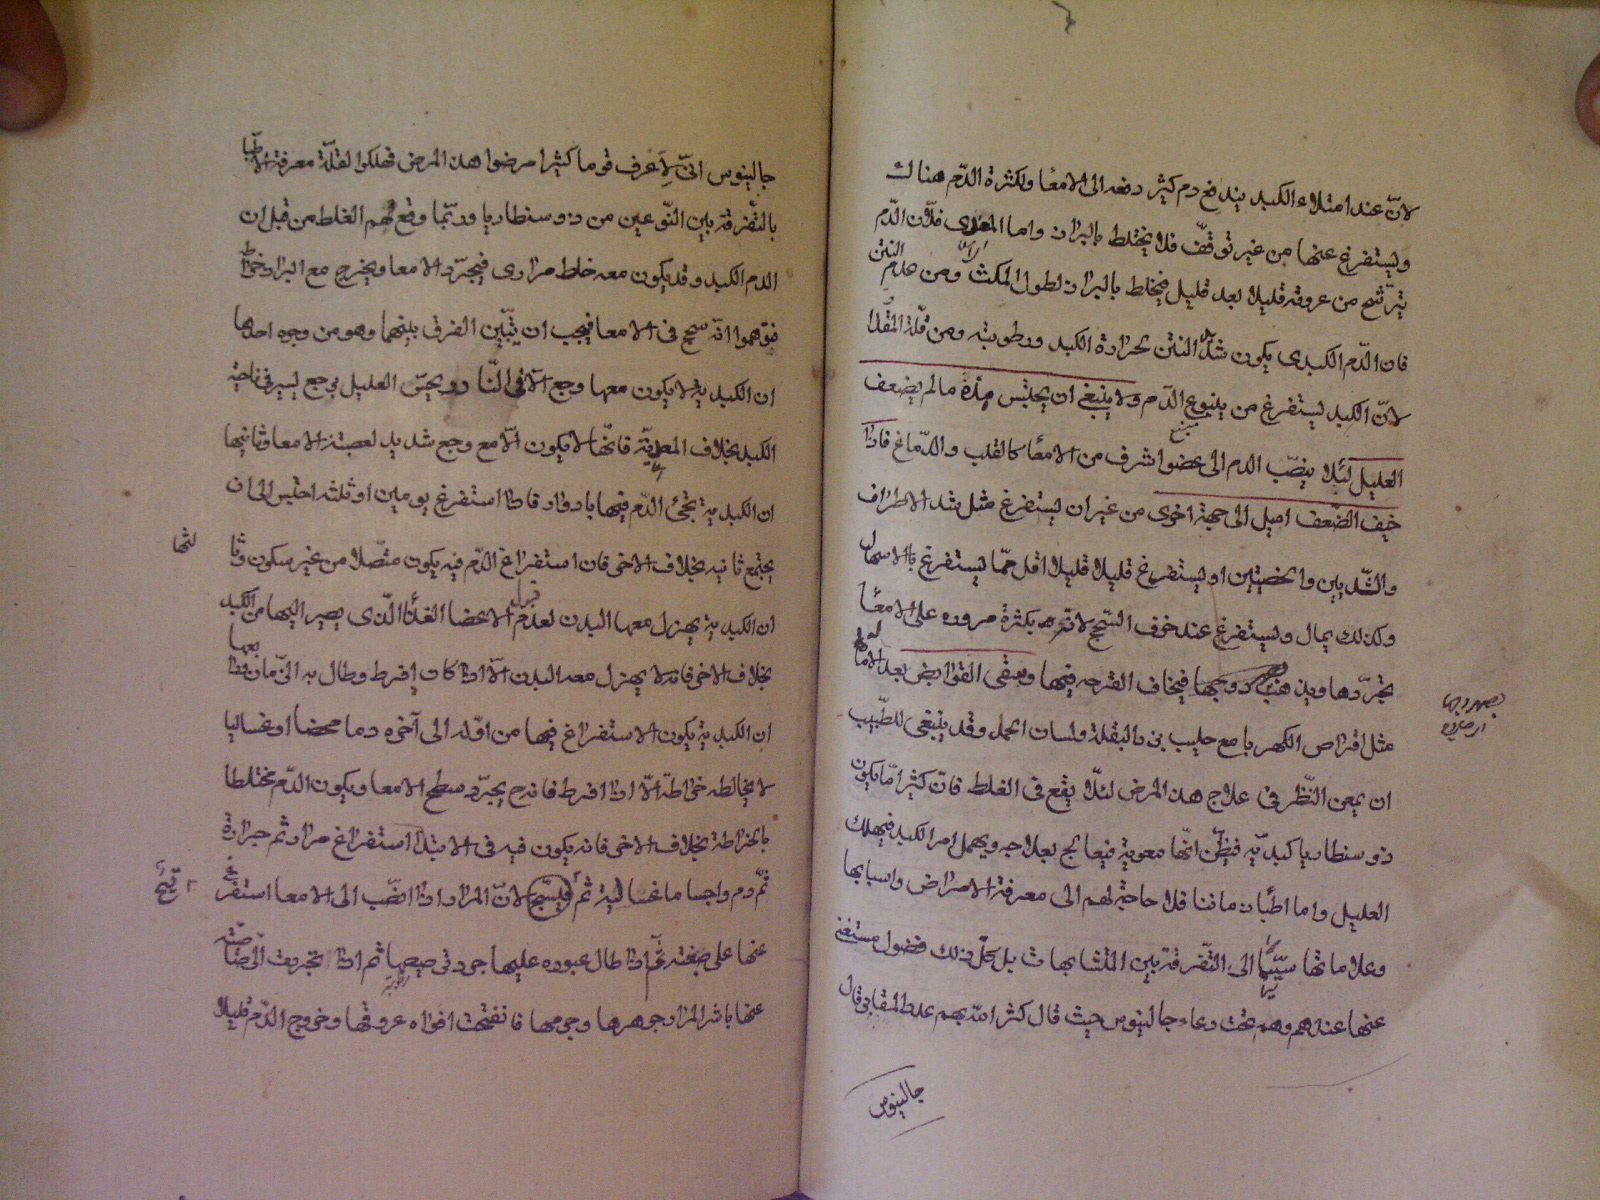 لانّ عند امتلاء الكبد يندفع دم كثير دفعه الى الامعا ولكثرة الدّم هناك
وليستفرغ عنها من غير توقّف فلا يختلط بالبراز واما المعوى فلانّ الدّم
يترشّح من عروقه قليلا بعد قليل فيخالط بالبراز لطول المكث ومن عدم النتن
فان الدّم الكبدى يكون شدّة النتن لحرارة الكبد ورطوبته ومن قلّة المقدار
لانّ الكبد ليستفرغ من ينبوع الدّم ولا ينبغى ان يحتبس مادّة ما لم يضعف
العليل لئلا ينصّب الدم الى عضو اشرف من الامعا كالقلب والدّماغ فاذا
خيف الضّعف اميل الى جهة اخرى من غير ان ليستفرغ مثل شد الاطراف
والثّديين والخصيتين او ليستفرغ قليلا قليلا اقل ممّا ليستفرغ بالاسهال
وكذلك يمال وليستفرغ عند خوف السّحج لانّه بكثرة مروره على الامعا
يجرّدها فيخاف القرحه فيها ويسقى القوابض بعد
مثل اقراص الكهربا مع حليب بزر البقلة ولسان الحمل وقد ينبغى للطّبيب
ان يمعن النّظر فى علاج هذا المرض لئلّا يقع فى الغلط فانّ كثيرا مّا يكون
ذوسنطاريا كبديّه فيظنّ انّها معوية فيعالج بعلاجه ويهمل امر الكبد فيهلك
العليل واما اطبّاء زماننا فلا حاجة لهم الى معرفة الامراض واسبابها
وعلاماتها سيّما الى التّفرقة بين المتشابهات بل كلّ ذلك فضول مستغنى
عنها عندهم وهم تحت دعاء جالينوس حيث قال كثر امّة بهم غلط المقابر قال
جالينوس
جالينوس انّى لاعرف قوما كثيرا مرضوا هذا المرض فهلكوا لقلّة معرفة الاطبّا
بالتّفرقة بين النّوعين من ذوسنطاريا وربّما وقع لهم الغلط من قبل ان
الدم الكبدى قد يكون معه خلط مرارى فيجرّد الامعا ويخرج مع البراز خراطة
فتوهموا انّه سحج فى الامعا فيجب ان يتبيّن الفرق بينهما وهو من وجوه احدها
ان الكبدية لا يكون معها وجع الّا فى النّادر ويحسّ العليل بوجع يسير فى ناحية
الكبد بخلاف المعوية فانّها لا يكون الّا مع وجع شديد لعصبة الامعا وثانيها
ان الكبدية يجئ الدّم فيها بادوار فاذا استفرغ يومين او ثلثه احتبس الى ان
يجتمع ثانيه بخلاف الاخرى فان استفراغ الدّم فيه يكون متّصلا من غير سكون وثالثها
ان الكبدية يهزل معها البدن لعدم قبول الاعضا الغذا الّذى يصير اليها من الكبد
بخلاف الاخرى فانه لا يهزل معه البدن الّا اذا كان افرط وطال به الزّمان ورابعها
ان الكبدية يكون الاستفراغ فيها من اوّله الى آخره دما محضا او غساليا
لا يخالطه خراطة الّا اذا افرط فانه ح يجرّد سطح الامعا ويكون الدّم مختلطا
بالخراطة بخلاف الاخرى فانه يكون فيه فى الابتدا استفراغ مرار ثم جرادة
ثمّ دم واجساما غسالية ثم قيح لانّ المرار اذا انصّب الى الامعا استفرغ
عنها على صبغته ثمّ اذا طال عبوره عليها جردتى ثم اذا تجردت
عنها باشر المرار جوهرها وجرمها فانفتحت افواه عروقها وخروج الدّم قليلا